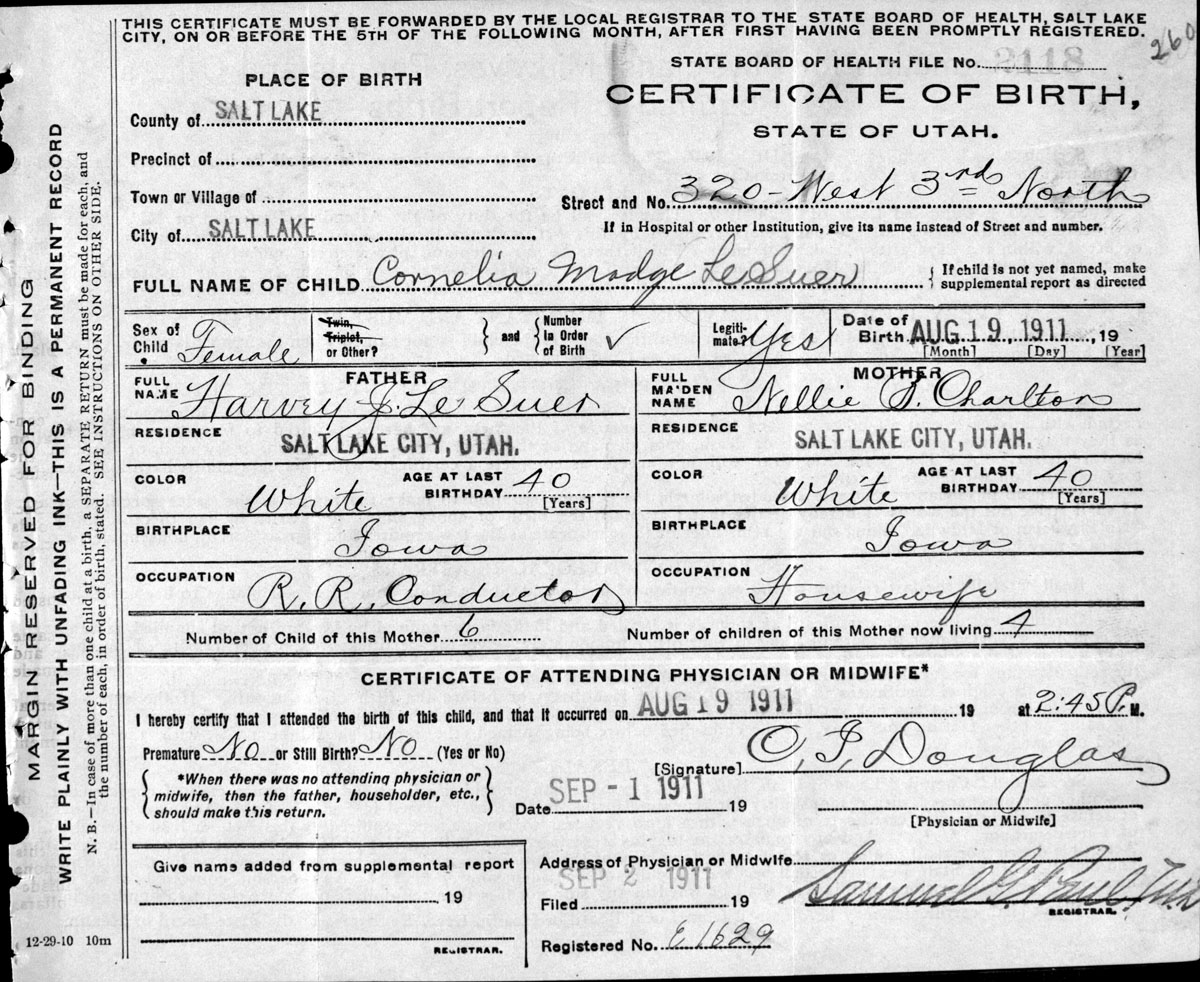 THIS CERTIFICATE MUST BE FORWARDED BY THE LOCAL REGISTRAR TO THE STATE BOARD OF HEALTH, SALT LAKE
CITY, ON OR BEFORE THE 5TH OF THE FOLLOWING MONTH, AFTER FIRST HAVING BEEN PROMPTLY REGISTERED.
260
STATE BOARD OF HEALTH FILE NO. 2118
PLACE OF BIRTH
CERTIFICATE OF BIRTH,
STATE OF UTAH.
County of SALT LAKE
Precinct of
Town or Village of
Street and No. 320 - West 3rd North
City of SALT LAKE
If in Hospital or other Institution, give its name instead of Street and number.
FULL NAME OF CHILD Cornelia Madge LeSuer
{ If child is not yet named, make
supplemental report as directed
Sex of Child Female
Twin, Triplet, or Other?
} and { Number in Order of Birth ✓
Legiti-mate? Yes
Date of Birth AUG 19 1911, 19
[Month] [Day] [Year]
FATHER
FULL NAME Harvey J. Le Suer
RESIDENCE SALT LAKE CITY, UTAH.
COLOR White
AGE AT LAST BIRTHDAY 40
[Years]
BIRTHPLACE Iowa
OCCUPATION R. R. Conductor
MOTHER
FULL MAIDEN NAME Nellie Charlton
RESIDENCE SALT LAKE CITY, UTAH.
COLOR White
AGE AT LAST BIRTHDAY 40
[Years]
BIRTHPLACE Iowa
OCCUPATION Housewife
Number of Child of this Mother 6
Number of children of this Mother now living 4
CERTIFICATE OF ATTENDING PHYSICIAN OR MIDWIFE*
I hereby certify that I attended the birth of this child, and that it occurred on AUG 19 1911 19 at 2:45 P. M.
Premature No or Still Birth? No (Yes or No)
[Signature] Douglas
{ *When there was no attending physician or
midwife, then the father, householder, etc.,
should make this return. }
Date SEP - 1 1911 19
[Physician or Midwife]
Give name added from supplemental report
19
REGISTRAR.
Address of Physician or Midwife
Filed SEP 2 1911 19
Samuel G. Paul
REGISTRAR.
Registered No. E1629
12-29-10 10m
MARGIN RESERVED FOR BINDING
WRITE PLAINLY WITH UNFADING INK—THIS IS A PERMANENT RECORD
N. B.—In case of more than one child at a birth, a SEPARATE RETURN must be made for each, and
the number of each, in order of birth, stated. SEE INSTRUCTIONS ON OTHER SIDE.